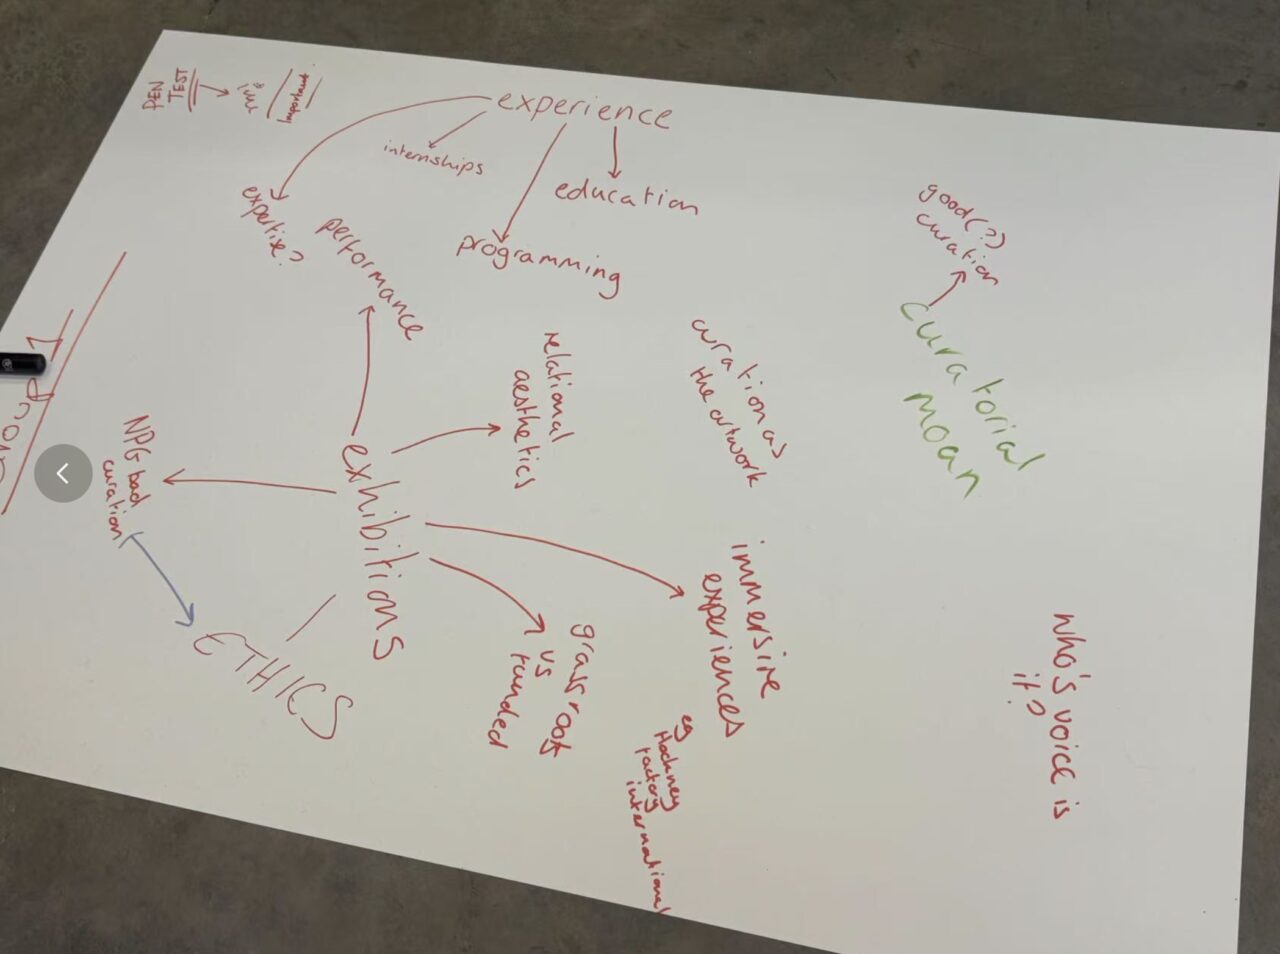 PEN
TEST
important
experience
internships
education
expertise?
programming
performance
good(?)
curation
curatorial
moan
relational
aesthetics
curation as
the artwork
exhibitions
NPG bad
curation
ETHICS
immersive
experiences
eg
Hockney
factory
international
grassroots
vs
funded
who's voice is
it?